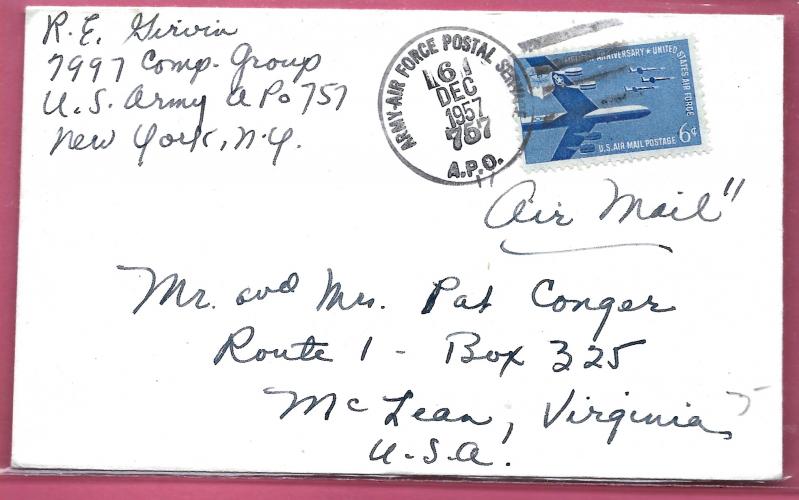 R. E. Girvin
7997 Comp. Group
U.S. Army APO 757
New York, N.Y.
ARMY-AIR FORCE POSTAL SERVICE
DEC
1957
757
A.P.O.
ANNIVERSARY • UNITED STATES AIR FORCE
U.S. AIR MAIL POSTAGE 6¢
"Air Mail"
Mr. and Mrs. Pat Conger
Route 1 - Box 325
McLean, Virginia
U.S.A.